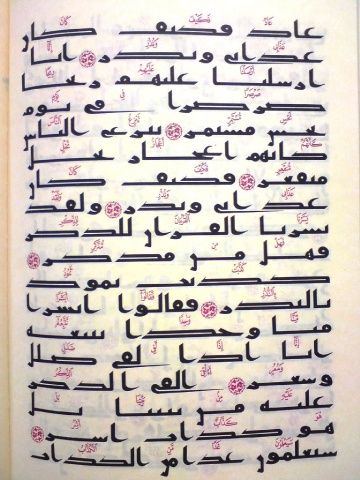 عاد فكيف كان
عذابي ونذر ۝ انا
ارسلنا عليهم ريحا
صرصرا في يوم
نحس مستمر ۝ تنزع الناس
كانهم اعجاز نخل
منقعر ۝ فكيف كان
عذابي ونذر ۝ ولقد
يسرنا القران للذكر
فهل من مدكر ۝
كذبت ثمود
بالنذر ۝ فقالوا ابشرا
منا وحدا نتبعه
انا اذا لفي ضلل
وسعر ۝ القي الذكر
عليه من بيننا بل
هو كذاب اشر ۝
سيعلمون غدا من الكذاب